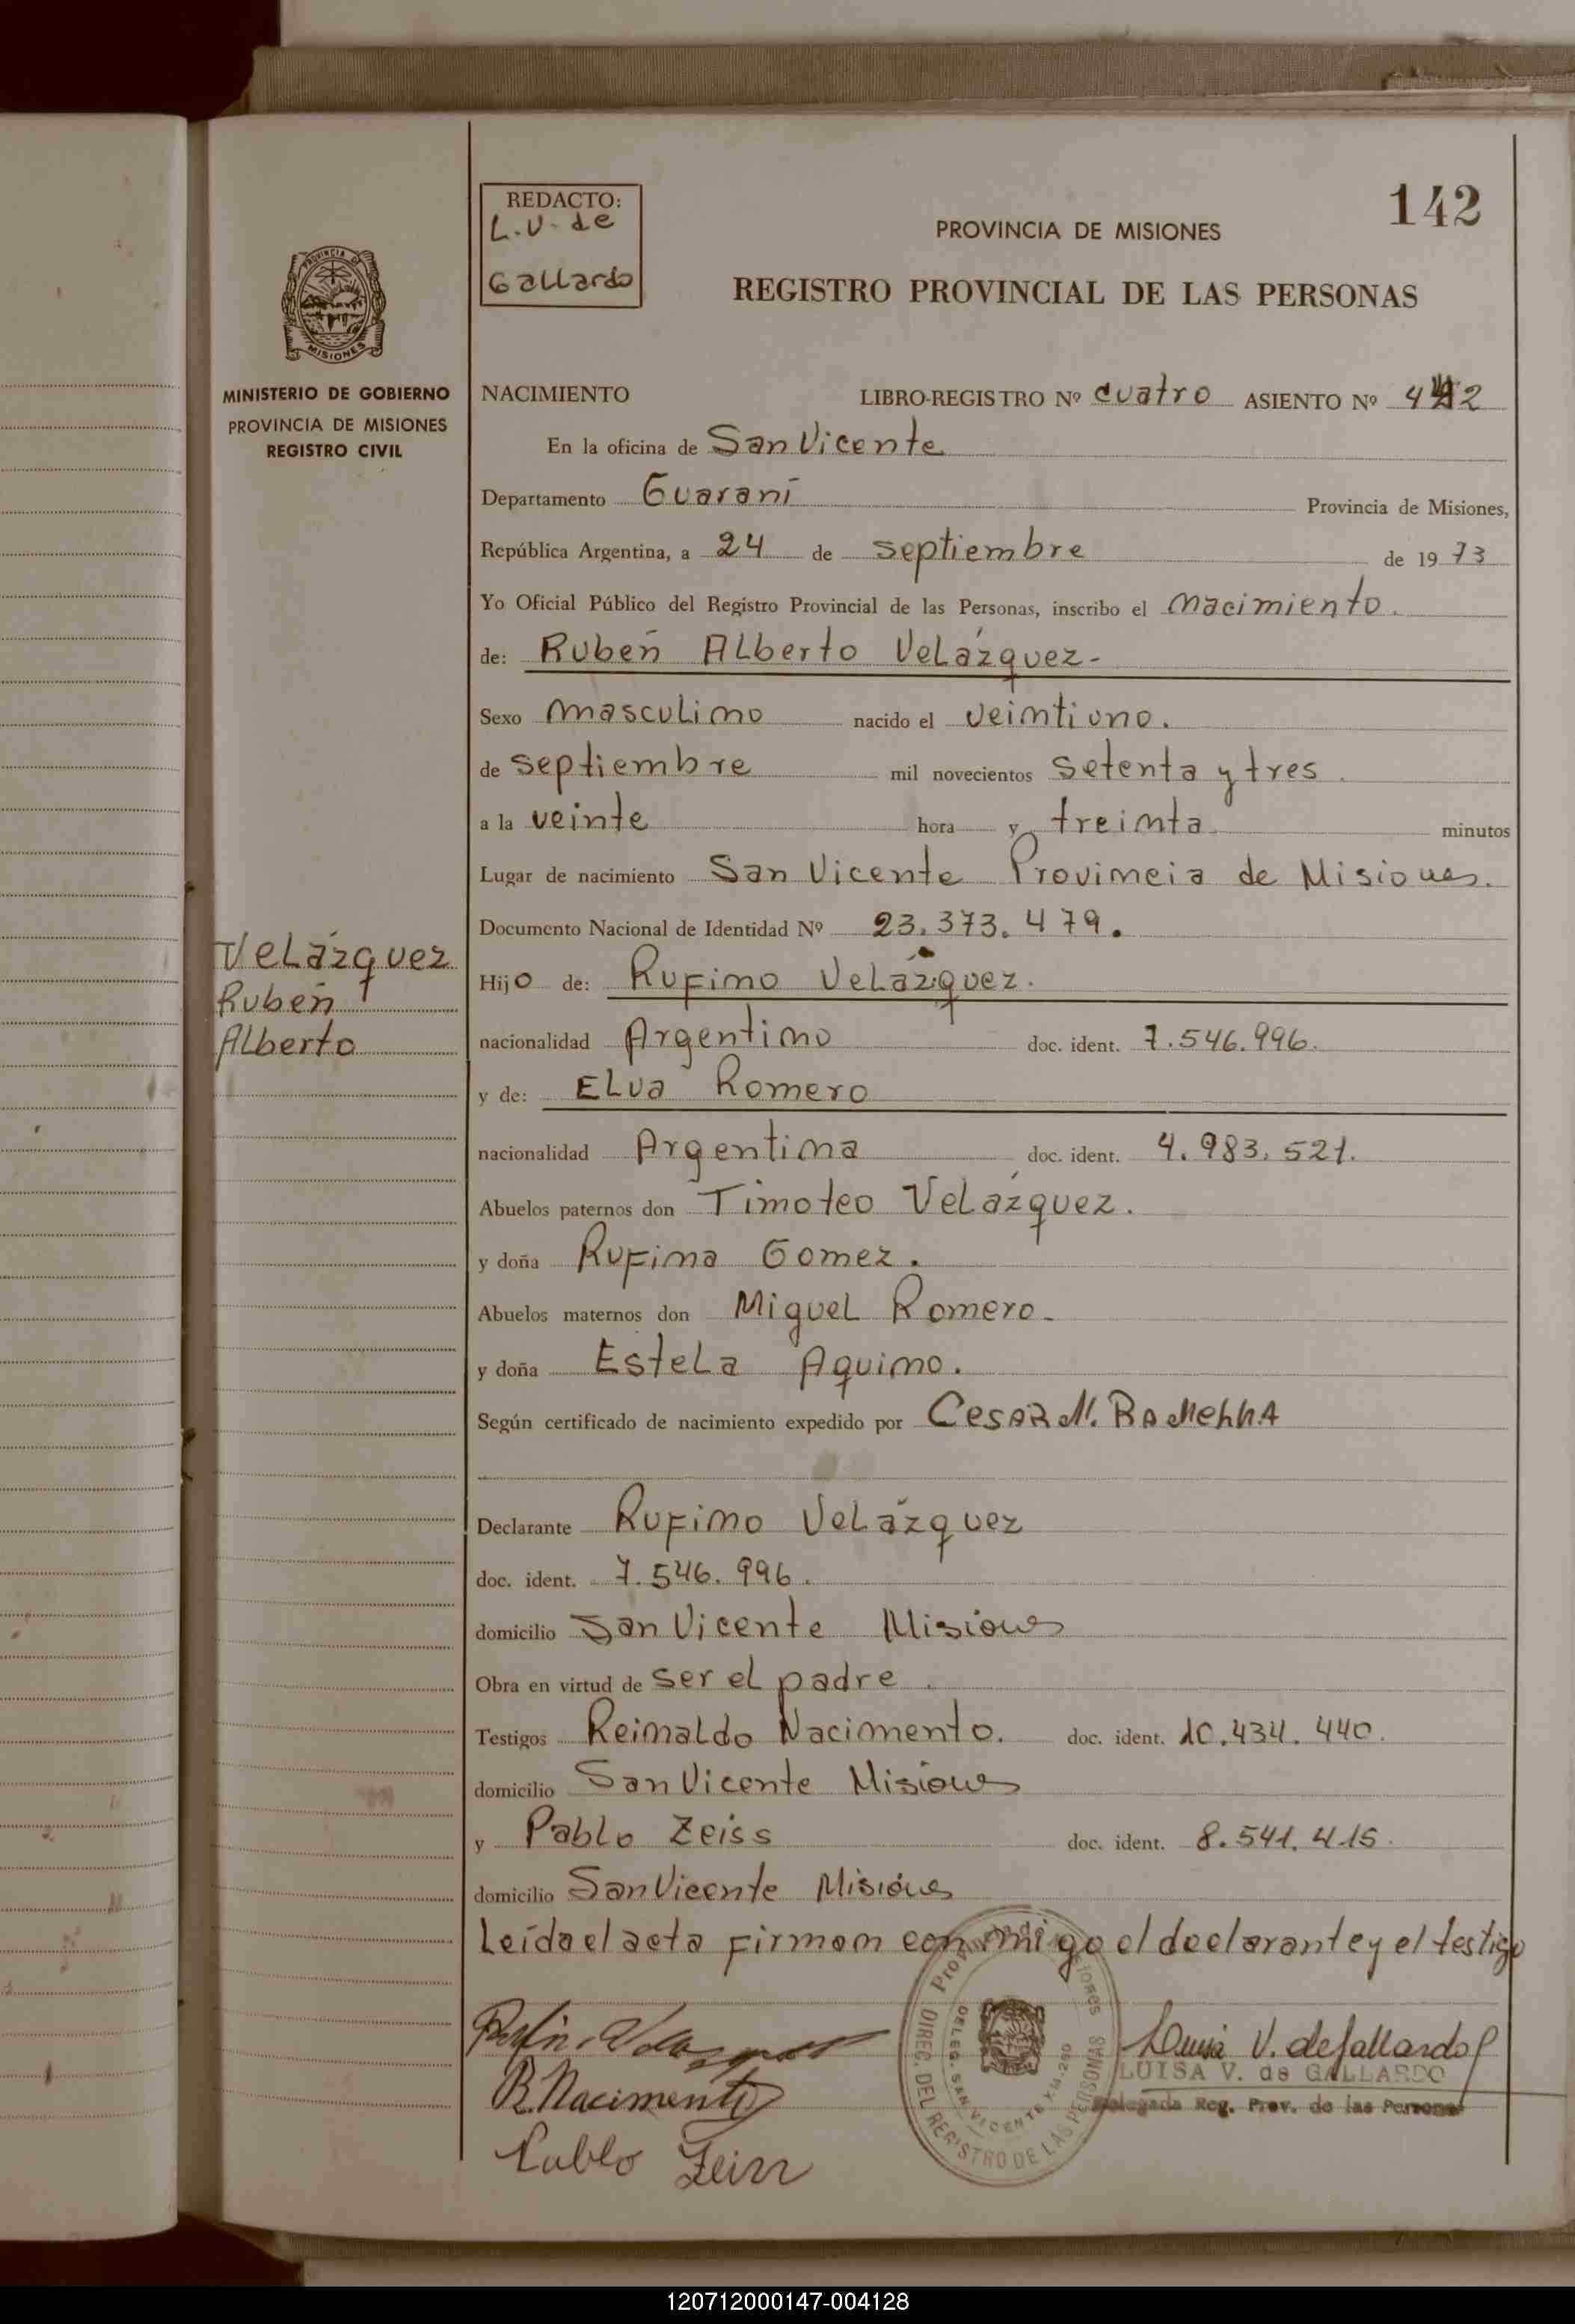 142
REDACTO:
L.V. de
Gallardo
PROVINCIA DE MISIONES
REGISTRO PROVINCIAL DE LAS PERSONAS
PROVINCIA DE
MISIONES
MINISTERIO DE GOBIERNO
PROVINCIA DE MISIONES
REGISTRO CIVIL
NACIMIENTO LIBRO-REGISTRO Nº cuatro ASIENTO Nº
En la oficina de San Vicente
Departamento Guaraní Provincia de Misiones,
República Argentina, a 24 de septiembre de 1973
Yo Oficial Público del Registro Provincial de las Personas, inscribo el nacimiento.
de: Rubén Alberto Velázquez-
Sexo masculino nacido el veintiuno.
de septiembre mil novecientos setenta y tres.
a la veinte hora y treinta minutos
Lugar de nacimiento San Vicente Provincia de Misiones.
Documento Nacional de Identidad Nº 23.373.479.
Velázquez
Rubén
Alberto
Hijo de: Rufino Velázquez.
nacionalidad Argentino doc. ident. 7.546.996.
y de: Elva Romero
nacionalidad Argentina doc. ident. 4.983.521.
Abuelos paternos don Timoteo Velázquez.
y doña Rufina Gomez.
Abuelos maternos don Miguel Romero-
y doña Estela Aquino.
Según certificado de nacimiento expedido por Cesar N.
Declarante Rufino Velázquez
doc. ident. 7.546.996.
domicilio San Vicente Misiones
Obra en virtud de ser el padre.
Testigos Reinaldo Nacimento. doc. ident. 10.434.440.
domicilio San Vicente Misiones
y Pablo Zeiss doc. ident. 8.541.415.
domicilio San Vicente Misiones
Leída el acta firman conmigo el declarante y el testigo
R. Nacimento
Pablo Zeiss
Provincia de Misiones
DIREC. DEL REGISTRO DE LAS PERSONAS
DELEG. SAN VICENTE KM.290
Luisa V. de Gallardo
LUISA V. de GALLARDO
Delegada Reg. Prov. de las Personas
120712000147-004128